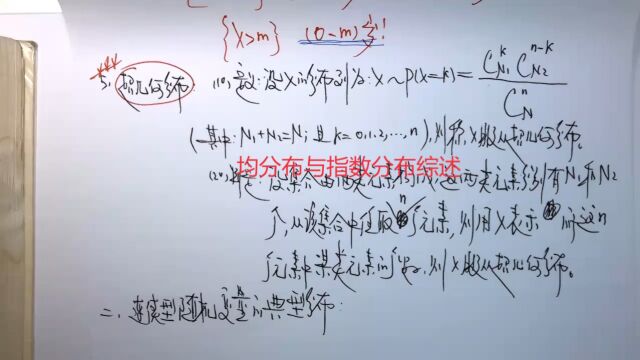 {X>m} (0-m)字!
5. 超几何分布: (1°)定义:设X的分布列为:X~P(X=k)= C_{N1}^{k} C_{N2}^{n-k} / C_N^n
(其中:N1+N2=N; 且k=0,1,2,…,n),则称X服从超几何分布。
均分布与指数分布综述
(2°) 设集合由两类元素构成,这两类元素分别有N1和N2
个,从该集合中任取n个元素,则用X表示所这n
个元素中某类元素的个数,则X服从超几何分布。
二、连续型随机变量的典型分布: